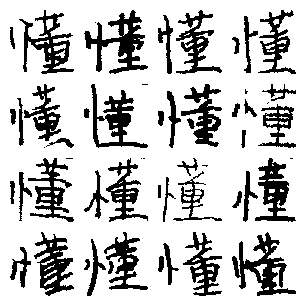 懂懂懂懂
懂懂懂懂
懂懂懂懂
懂懂懂懂